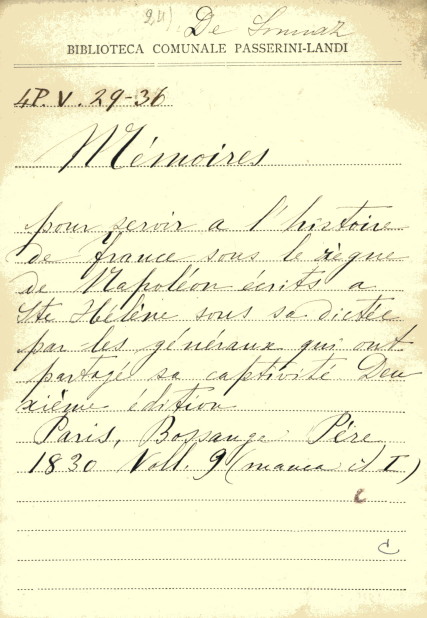 9,4)
De Sonnaz
BIBLIOTECA COMUNALE PASSERINI-LANDI
4P. V. 29-36
Mémoires
pour servir a l'histoire
de france sous le règne
de Napoléon écrits a
Ste Hélène sous sa dictée
par les généraux qui ont
partagé sa captivité Deu
xième édition
Paris, Bossange Père
1830 Voll. 9 (manca il I)
C
C